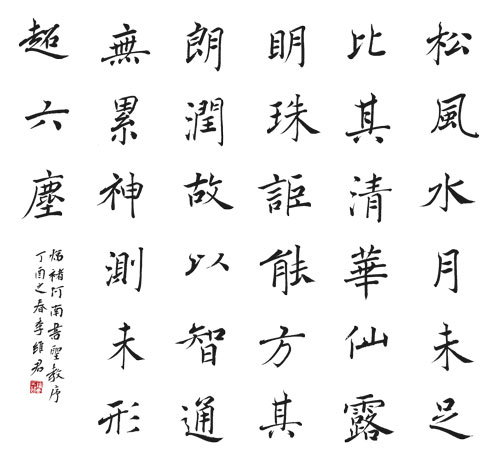 松風水月未足
比其清華仙露
明珠詎能方其
朗潤故以智通
無累神測未形
超六塵
臨褚河南書聖教序
丁酉之春李維君